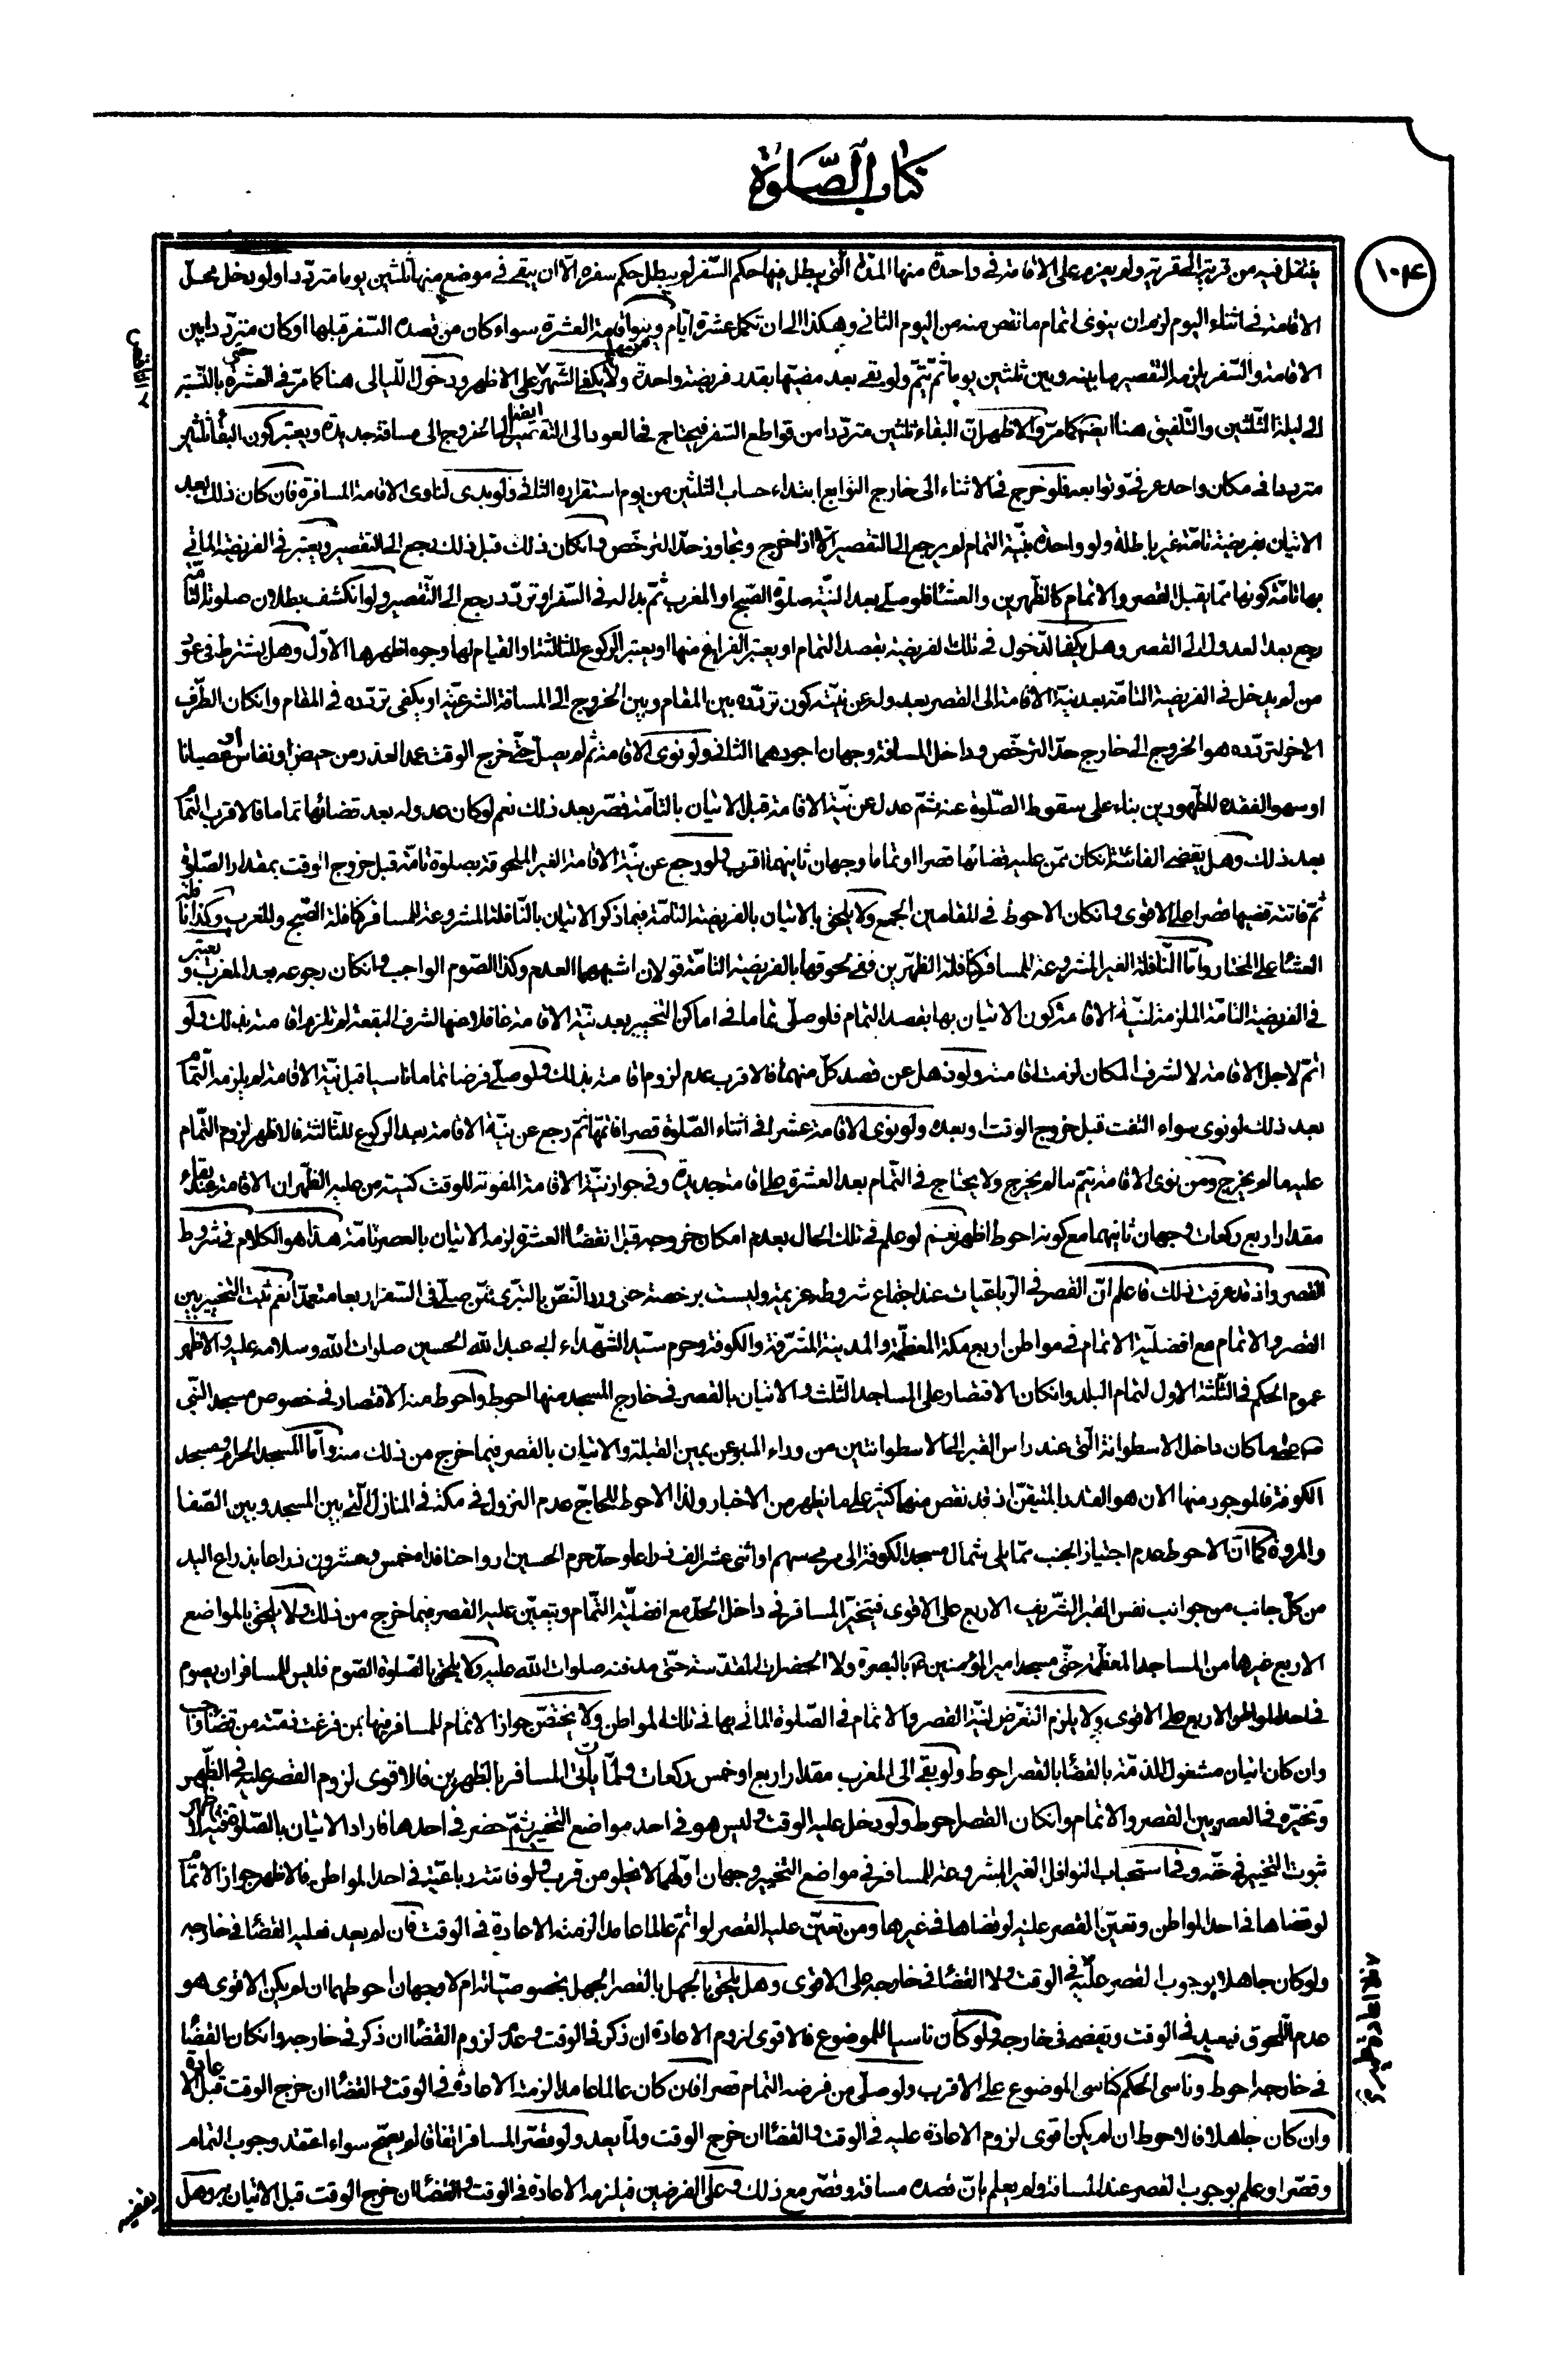 كتاب الصّلوة
١٠٤
ينتقل فيه من قرية الى قرية ولم يعزم على الاقامة في واحدة منها المدّة الّتي يبطل فيها حكم السّفر لم يبطل حكم سفره الّا ان يبقى في موضع منها ثلثين يوما متردّدا ولو دخل محلّ
الاقامة في اثناء اليوم لزم ان ينوى اتمام ما نقص منه من اليوم الثاني وهكذا الى ان تكمل عشرة ايّام وينوى اقامة العشرة سواء كان من قصده السّفر قبلها او كان متردّدا بين
الاقامة والسّفر يلزمه التقصير ما بينه وبين ثلثين يوما ثمّ يتمّ ولو بقى بعد مضيّها بقدر فريضة واحدة ولا يكفى الشّهر على الاظهر ودخول اللّيالى هنا كما مرّ في العشرة حتى بالنّسبة
الى ليلة الثّلثين والتّلفيق هنا ايضا كما مرّ والاظهر انّ البقاء ثلثين متردّدا من قواطع السّفر فيحتاج في العود الى التقصير ايضا الى الخروج الى مسافة جديدة ويعتبر كون البقاء ثلثين
متردّدا في مكان واحد عرفي وتوابعه فلو خرج في الاثناء الى خارج التوابع ابتداء حساب الثلثين من يوم استقراره الثاني ولو بدى لناوى الاقامة المسافرة فان كان ذلك بعد
الاتيان بفريضة تامّة غير باطلة ولو واحدة بنيّة التمام لم يرجع الى التقصير الّا اذا خرج وتجاوز حدّ الترخّص وان كان ذلك قبل ذلك رجع الى التقصير ويعتبر في الفريضة الماتي
بها تامّة كونها ممّا يقبل القصر والاتمام كالظّهرين والعشاء فلو صلّى بعد النيّة صلوة الصّبح او المغرب ثمّ بدا له في السّفر او تردّد رجع الى التّقصير ولو انكشف بطلان صلوته التامّة
رجع بعد العدول الى القصر وهل يكفى الدّخول في تلك الفريضة بقصد التمام او يعتبر الفراغ منها او يعتبر الركوع للثالثة او القيام لها وجوه اظهرها الاوّل وهل يشترط في عود
من لم يدخل في الفريضة التامّة بعد نيّة الاقامة الى القصر بعدوله عن نيّته كون تردّده بين المقام وبين الخروج الى المسافة الشرعيّة او يكفى تردّده في المقام وان كان الطّرف
الاخر لتردّده هو الخروج الى خارج حدّ الترخّص وداخل المسافة وجهان اجودهما الثاني ولو نوى الاقامة ثم لم يصلّ حتّى خرج الوقت عمدا لعذر من حيض او نفاس او عصيانا
او سهو الفقده للطّهورين بناء على سقوط الصّلوة عنه ثمّ عدل عن نيّة الاقامة قبل الاتيان بالتامّة قصّر بعد ذلك نعم لو كان عدوله بعد قضائها تماما فالاقرب التمام
بعد ذلك وهل يقضى الفائتة ان كان ممّن عليه قضائها قصرا او تماما وجهان ثانيهما اقرب ولو رجع عن نيّة الاقامة الغير الملحوقة بصلوة تامّة قبل خروج الوقت بمقدار الصّلوة
ثمّ فاتته قضيها قصرا على الاقوى وان كان الاحوط في المقامين الجمع ولا يلحق بالاتيان بالفريضة التامّة فيما ذكر الاتيان بالنّافلة المشروعة للمسافر كنافلة الصّبح والمغرب وكذا نافلة
العشاء على المختار وامّا النّافلة الغير المشروعة للمسافر كنافلة الظهرين ففي لحوقها بالفريضة التامّة قولان اشبههما العدم وكذا الصّوم الواجب وان كان رجوعه بعد المغرب ويعتبر
في الفريضة التامّة الملزمة لنيّة الاقامة كون الاتيان بها بقصد التمام فلو صلّى تماما في اماكن التخيير بعد نيّة الاقامة غافلا عنها لشرف البقعة لم تلزم اقامته بذلك ولو
اتمّ لاجل الاقامة لا لشرف المكان لزمت اقامته ولو ذهل عن قصد كلّ منهما فالاقرب عدم لزوم اقامته بذلك ولو صلّى فرضا تماما ناسيا قبل نيّة الاقامة لم يلزمه التّمام
بعد ذلك لو نوى سواء التفت قبل خروج الوقت او بعده ولو نوى الاقامة عشرا في اثناء الصّلوة قصرا فاتمّها ثم رجع عن نيّة الاقامة بعد الركوع للثّالثة فالاظهر لزوم التّمام
عليه ما لم يخرج ومن نوى الاقامة يتمّ ما لم يخرج ولا يحتاج في التّمام بعد العشرة على اقامة جديدة وفي جواز نيّة الاقامة المفوتة للوقت كنيّة من عليه الظّهران الاقامة عند بقاء
مقدار اربع ركعات وجهان ثانيهما مع كونه احوط اظهر نعم لو علم في تلك الحال بعدم امكان خروجه قبل انقضاء العشرة لزمه الاتيان بالعصر تامّة هذا هو الكلام في شروط
القصر واذ قد عرفت ذلك فاعلم انّ القصر في الرّباعيّات عند اجتماع شروطه عزيمة وليست برخصة حتى ورد النّصّ بالتبرّى ممّن صلّى في السّفر اربعا متعمّدا نعم ثبت التخيير بين
القصر والاتمام مع افضليّة الاتمام في مواطن اربع مكة المعظّمة والمدينة المشرّفة والكوفة وحرم سيّد الشّهداء ابي عبد الله الحسين صلوات الله وسلامه عليه والاظهر
عموم الحكم في الثّلثة الاول لتمام البلد وان كان الاقتصار على المساجد الثّلث والاتيان بالقصر في خارج المسجد منها احوط واحوط منه الاقتصار في خصوص مسجد النّبي
ص على ما كان داخل الاسطوانة الّتي عند راس القبر الى الاسطوانتين من وراء المنبر عن يمين القبلة والاتيان بالقصر فيما خرج من ذلك منه وامّا المسجد الحرام ومسجد
الكوفة فالموجود منهما الان هو القدر المتيقّن اذ قد نقص منهما كثير على ما يظهر من الاخبار ولذا الاحوط للحاجّ عدم النزول في مكة في المنازل الّتي بين المسجد وبين الصّفا
والمروة كما انّ الاحوط عدم اجتياز الجنب ممّا يلي شمال مسجد الكوفة الى مرمى سهم او اثنى عشر الف ذراعا وحدّ حرم الحسين ارواحنا فداه خمس وعشرون ذراعا بذراع اليد
من كلّ جانب من جوانب نفس القبر الشّريف الاربع على الاقوى فيتخيّر المسافر في داخل الحدّ مع افضليّة التّمام ويتعيّن عليه القصر فيما خرج من ذلك ولا يلحق بالمواضع
الاربع غيرها من المساجد المعظّمة حتّى مسجد امير المؤمنين ع بالبصرة ولا الحضرات المقدّسة حتّى مدفنه صلوات الله عليه ولا يلحق بالصّلوة الصّوم فليس للمسافر ان يصوم
في احد المواطن الاربع على الاقوى ولا يلزم التعرّض لنيّة القصر والاتمام في الصّلوة الماتي بها في تلك المواطن ولا يختصّ جواز الاتمام للمسافر فيها بمن فرغت ذمّته من قضاء واجب
وان كان اتيان مشغول الذّمّة بالقضاء بالقصر احوط ولو بقى الى المغرب مقدار اربع او خمس ركعات ولمّا يأت المسافر بالظهرين فالاقوى لزوم القصر عليه في الظّهر
وتخيّره في العصر بين القصر والاتمام وان كان القصر احوط ولو دخل عليه الوقت وليس هو في احد مواضع التخيير ثمّ حضر في احدها فاراد الاتيان بالصّلوة فيه فالاظهر
ثبوت التخيير في حقّه وفي استحباب النوافل الغير المشروعة للمسافر في مواضع التخيير وجهان اوّلهما لا يخلو من قرب ولو فاتته رباعيّة في احد المواطن فالاظهر جواز الاتمام
لو قضاها في احد المواطن وتعيّن القصر عليه لو قضاها في غيرها ومن تعيّن عليه القصر لو اتمّ عالما عامدا لزمته الاعادة في الوقت فان لم يعد فعليه القضاء في خارجه
ولو كان جاهلا بوجوب القصر عليه في الوقت ولا القضاء في خارجه على الاقوى وهل يلحق بالجهل بالقصر الجهل بخصوصيّاته ام لا وجهان احوطهما ان لم يكن الاقوى هو
عدم اللّحوق فيعيد في الوقت ويقضى في خارجه ولو كان ناسيا للموضوع فالاقوى لزوم الاعادة ان ذكر في الوقت وعدم لزوم القضاء ان ذكر في خارجه وان كان القضاء
في خارجه احوط وناسى الحكم كناسى الموضوع على الاقرب ولو صلّى من فرضه التمام قصرا فان كان عالما عامدا لزمته الاعادة في الوقت والقضاء ان خرج الوقت قبل الاعادة
وان كان جاهلا فالاحوط ان لم يكن اقوى لزوم الاعادة عليه في الوقت والقضاء ان خرج الوقت ولمّا يعد ولو قصّر المسافر اتفاقا لم يصحّ سواء اعتقد وجوب التمام
وقصّر او علم بوجوب القصر عند المسافة ولم يعلم بانّ قصده مسافة وقصّر مع ذلك وعلى الفرضين فيلزمه الاعادة في الوقت والقضاء ان خرج الوقت قبل الاتيان به وهل